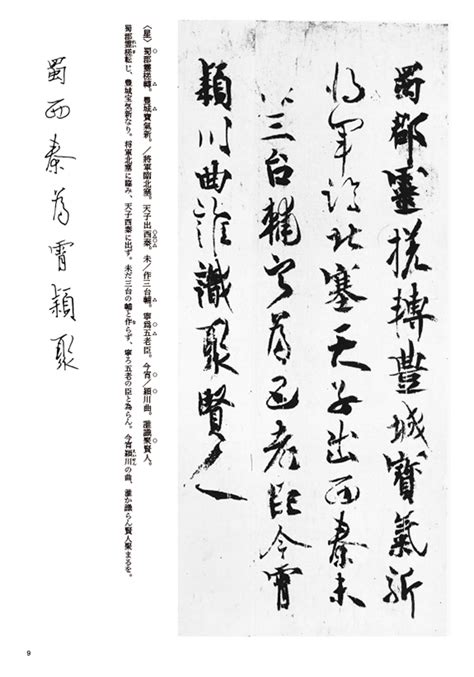 蜀郡靈槎轉豐城寶氣新
将軍臨北塞天子出西秦未
作三台輔寧為五老臣今霄
潁川曲誰識聚賢人
〈星〉蜀郡靈槎轉。豊城寶氣新。／將軍臨北塞。天子出西秦。未／作三台輔。寧爲五老臣。今宵／潁川曲。誰識聚賢人。
蜀郡霊槎転じ、豊城宝気新なり。将軍北塞に臨み、天子西秦に出ず。未だ三台の輔と作らず、寧ろ五老の臣と為らん。今宵潁川の曲、誰か識らん賢人聚まるを。
蜀西秦為霄潁聚
9